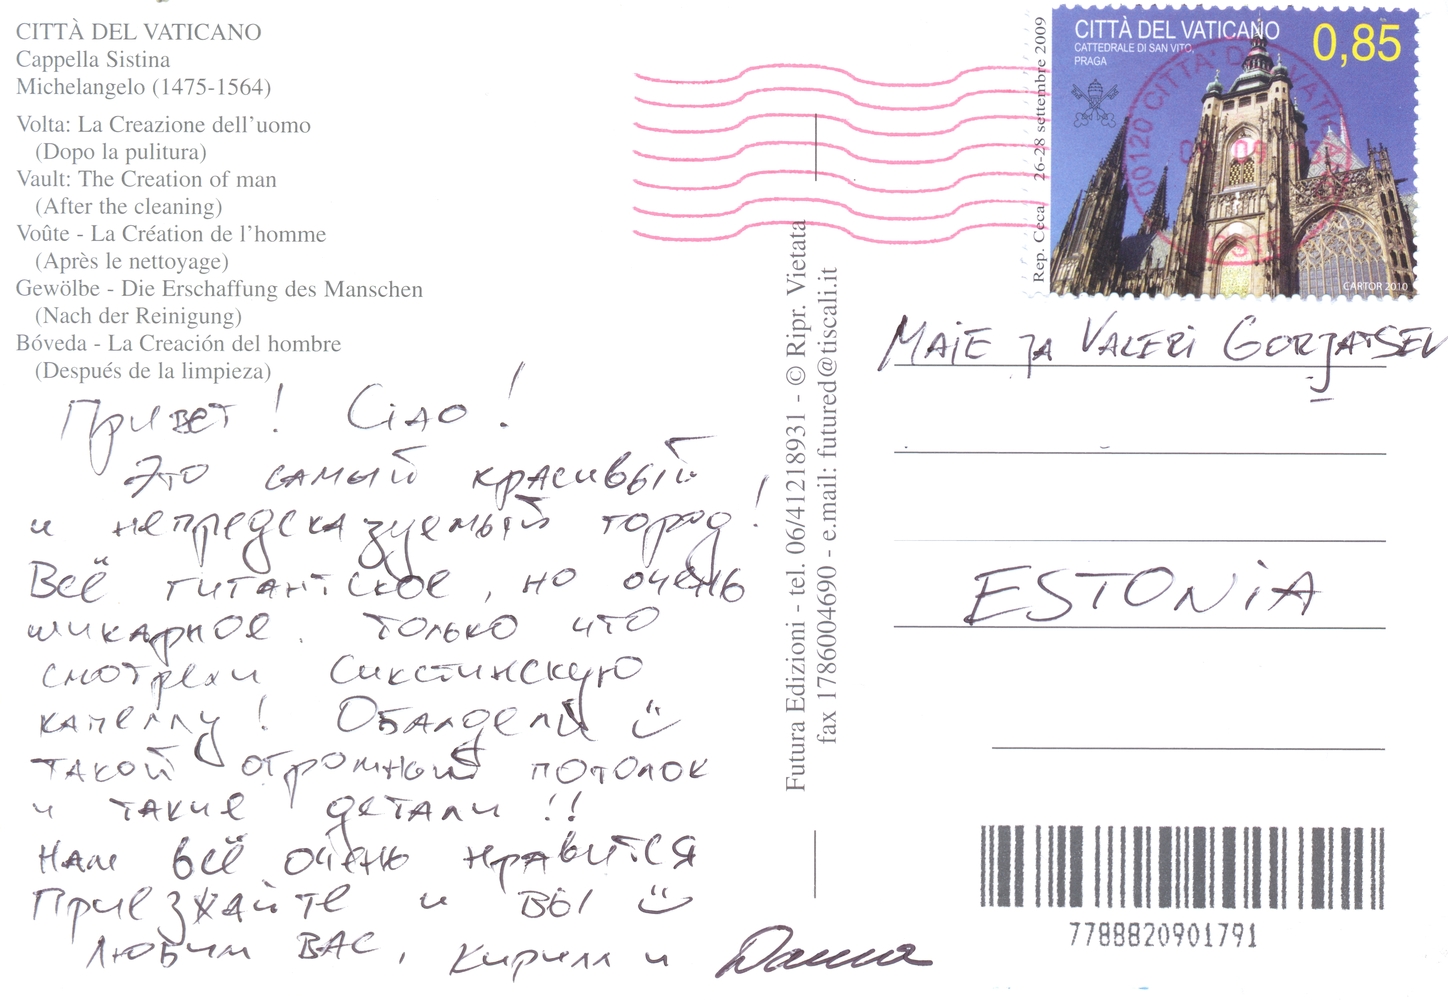 CITTÀ DEL VATICANO
Cappella Sistina
Michelangelo (1475-1564)
Volta: La Creazione dell'uomo
(Dopo la pulitura)
Vault: The Creation of man
(After the cleaning)
Voûte - La Création de l'homme
(Après le nettoyage)
Gewölbe - Die Erschaffung des Manschen
(Nach der Reinigung)
Bóveda - La Creación del hombre
(Después de la limpieza)
Привет! Ciao!
Это самый красивый
и непредсказуемый город!
Всё гигантское, но очень
шикарное. Только что
смотрели Сикстинскую
капеллу! Обалдели
такой огромный потолок
и такие детали!!
Нам всё очень нравится
Приезжайте и вы
Любим вас, Кирилл и
Futura Edizioni - tel. 06/41218931 - © Ripr. Vietata
fax 1786004690 - e.mail: futured@tiscali.it
Rep. Ceca 26-28 settembre 2009
CITTÀ DEL VATICANO
CATTEDRALE DI SAN VITO,
PRAGA
0,85
CARTOR 2010
00120 CITTA' DEL VATICANO
MAIE JA VALERI GORJATSEV
ESTONIA
7788820901791